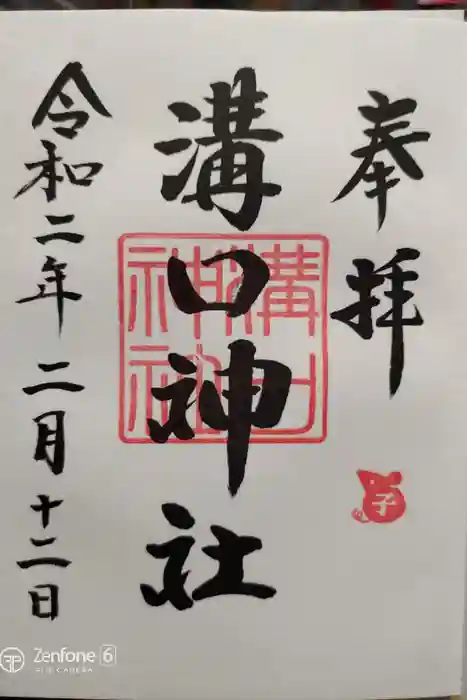 奉拝
子
溝口神社
溝口
神社
令和二年二月十二日
Zenfone 6